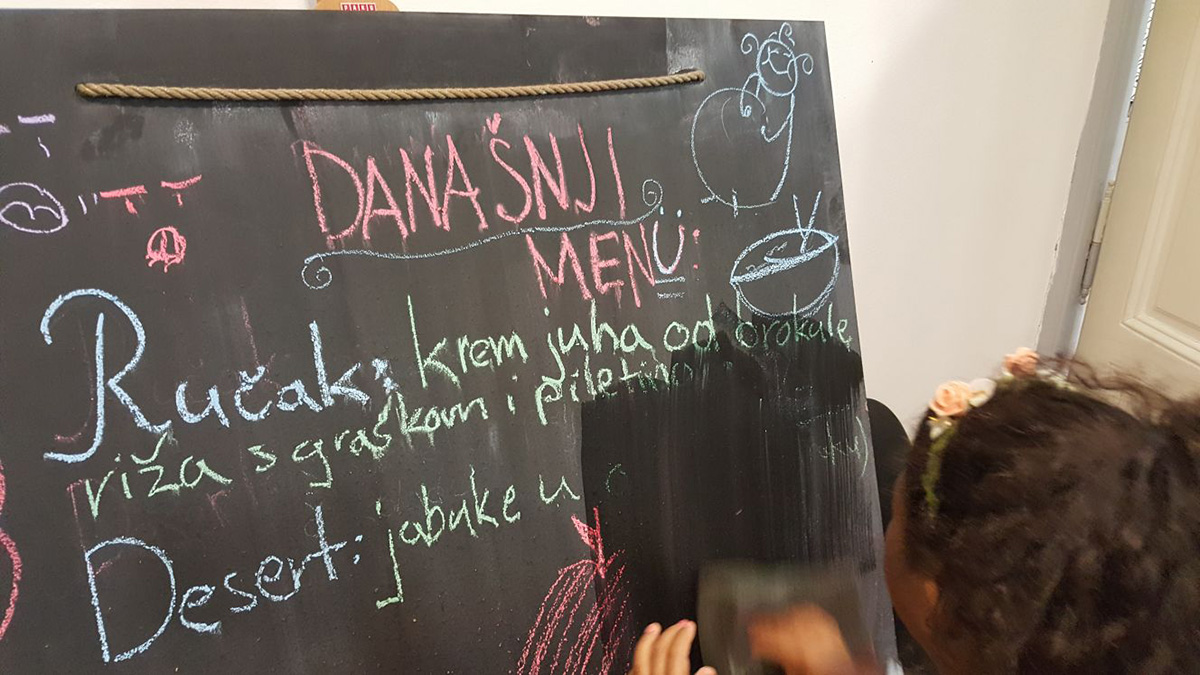 DANAŠNJI
MENÜ:
Ručak: krem juha od brokule
riža s graškom i piletinom
Desert: jabuke u